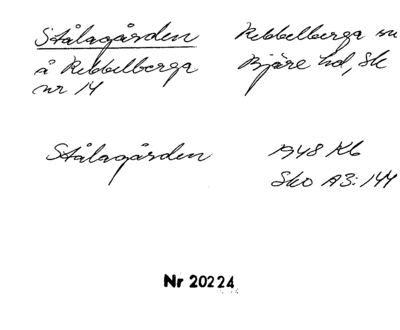 Stålagården
Rebbelberga sn
å Rebbelberga
Bjäre hd, Sk
nr 14
Stålagården
1948 Kb
Sko A3:144
Nr 20224